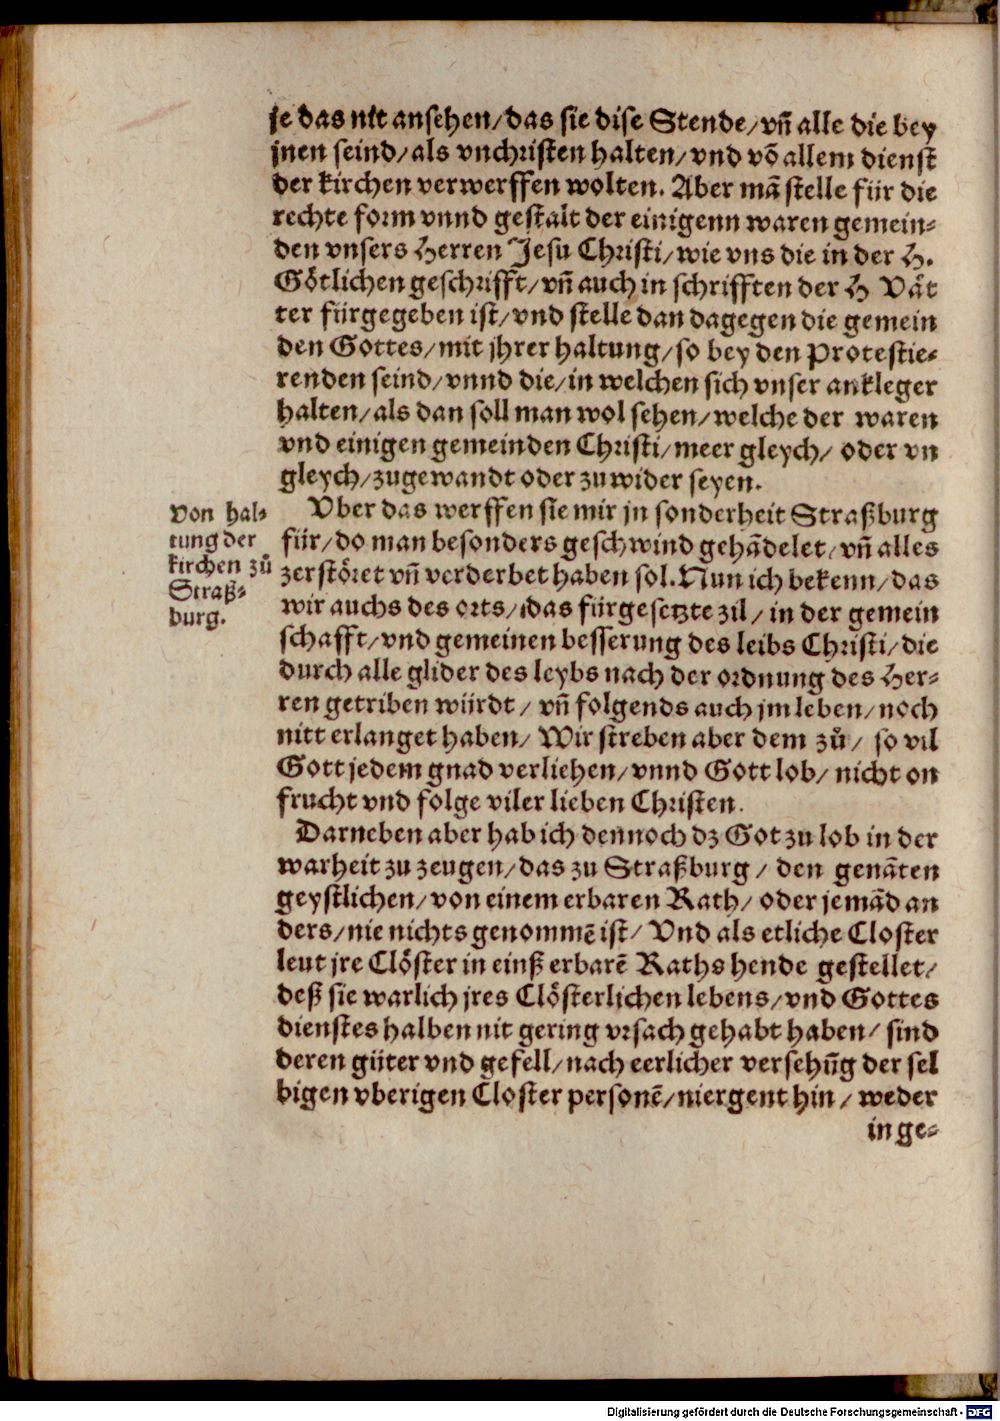 je das nit ansehen/das sie dise Stende/vñ alle die bey
jnen seind/als vnchristen halten/vnd võ allem dienst
der kirchen verwerffen wolten. Aber mã stelle für die
rechte form vnnd gestalt der einigenn waren gemein-
den vnsers Herren Jesu Christi/wie vns die in der H.
Götlichen geschrifft/vñ auch in schrifften der H Vät
ter fürgegeben ist/vnd stelle dan dagegen die gemein
den Gottes/mit jhrer haltung/so bey den Protestie-
renden seind/vnnd die/in welchen sich vnser ankleger
halten/als dan soll man wol sehen/welche der waren
vnd einigen gemeinden Christi/meer gleych/ oder vn
gleych/zugewandt oder zu wider seyen.
Von hal-
tung der
kirchen zů
Straß-
burg.
Vber das werffen sie mir jn sonderheit Straßburg
für/do man besonders geschwind gehãdelet/vñ alles
zerstöret vñ verderbet haben sol. Nun ich bekenn/das
wir auchs des orts/das fürgesetzte zil/in der gemein
schafft/vnd gemeinen besserung des leibs Christi/die
durch alle glider des leybs nach der ordnung des Her-
ren getriben würdt/ vñ folgends auch jm leben/noch
nitt erlanget haben/ Wir streben aber dem zů/ so vil
Gott jedem gnad verliehen/vnnd Gott lob/ nicht on
frucht vnd folge viler lieben Christen.
Darneben aber hab ich dennoch dz Got zu lob in der
warheit zu zeugen/das zu Straßburg/ den genãten
geystlichen/von einem erbaren Rath/ oder jemãd an
ders/nie nichts genommẽ ist/ Vnd als etliche Closter
leut jre Clöster in einß erbarẽ Raths hende gestellet/
deß sie warlich jres Clösterlichen lebens/vnd Gottes
dienstes halben nit gering vrsach gehabt haben/ sind
deren güter vnd gefell/nach eerlicher versehũg der sel
bigen vberigen Closter personẽ/niergent hin/ weder
in ge-
Digitalisierung gefördert durch die Deutsche Forschungsgemeinschaft - DFG